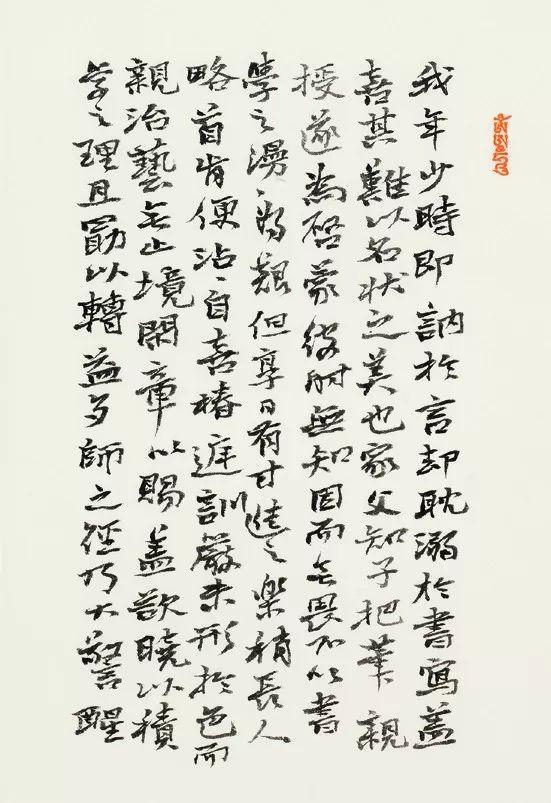 我年少時即訥於言却耽溺於書寫蓋
喜其難以名狀之美也家父知子把筆親
授遂為啓蒙彼时無知因而无畏不以書
學之漫々為艱但享日有寸進之樂稍長人
略首肯便沾々自喜椿庭訓嚴未形於色而
親治藝无止境閑章以賜蓋欲曉以積
学之理且勖以轉益多師之徑乃大警醒